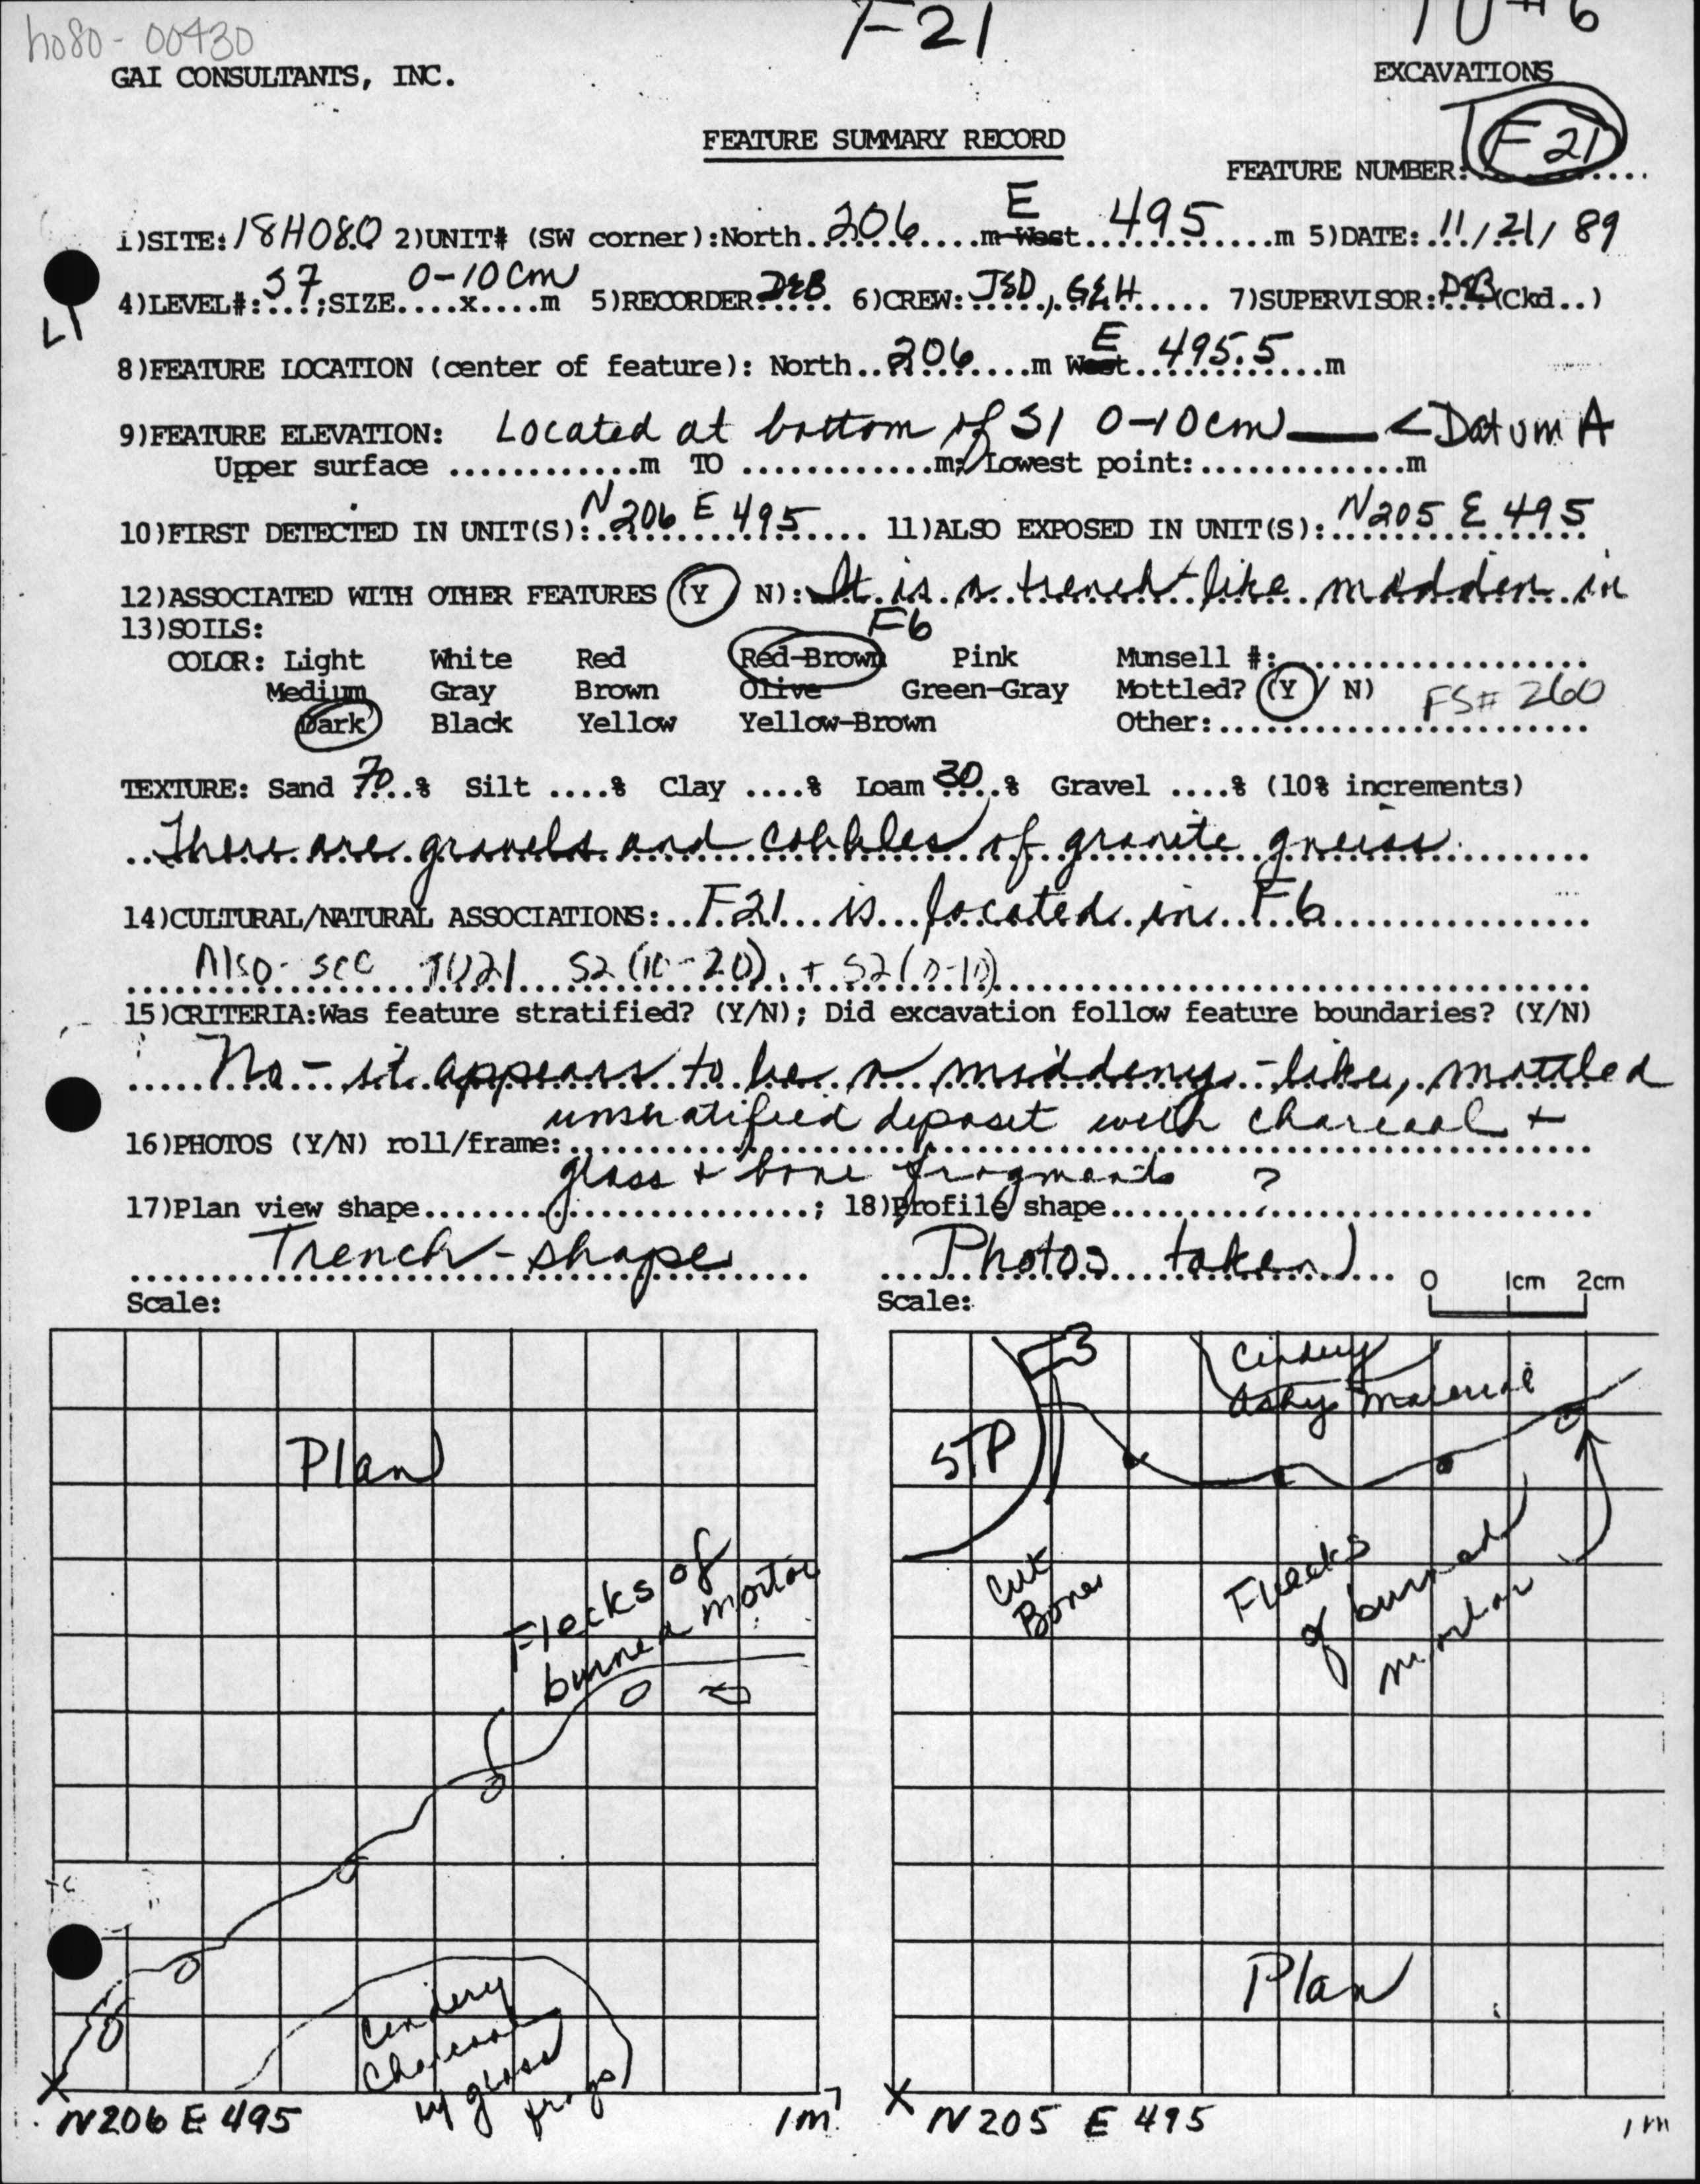 ho80-00430
F21
TU #6
GAI CONSULTANTS, INC.
EXCAVATIONS
FEATURE SUMMARY RECORD
FEATURE NUMBER: F21
1)SITE: 18HO80 2)UNIT# (SW corner):North 206 m West E 495 m 5)DATE: 11/21/89
4)LEVEL#: S7;SIZE....x....m 0-10cm 5)RECORDER: DEB 6)CREW: JED, GEH 7)SUPERVISOR: DEB (Ckd..)
8)FEATURE LOCATION (center of feature): North 206 m West E 495.5 m
9)FEATURE ELEVATION: Located at bottom of S1 0-10cm < Datum A
Upper surface ............m TO ............m; Lowest point:.............m
10)FIRST DETECTED IN UNIT(S): N206 E495 11)ALSO EXPOSED IN UNIT(S): N205 E 495
12)ASSOCIATED WITH OTHER FEATURES (Y N): It is a trench-like midden in
F6
13)SOILS:
COLOR: Light White Red Red-Brown Pink Munsell #:
Medium Gray Brown Olive Green-Gray Mottled? (Y / N) FS# 260
Dark Black Yellow Yellow-Brown Other:
TEXTURE: Sand 70 % Silt ....% Clay ....% Loam 30 % Gravel ....% (10% increments)
There are gravels and cobbles of granite gneiss.
14)CULTURAL/NATURAL ASSOCIATIONS: F21 is located in F6
Also- see TU21 S2 (10-20), + S2 (0-10)
15)CRITERIA:Was feature stratified? (Y/N); Did excavation follow feature boundaries? (Y/N)
No - it appears to be a middeny-like, mottled
unstratified deposit with charcoal +
16)PHOTOS (Y/N) roll/frame:
glass + bone fragments ?
17)Plan view shape ; 18)Profile shape
Trench-shape Photos taken
Scale: Scale: 0 1cm 2cm
F3
Cindery
Ashy material
STP
Plan
Cut
Bone
Flecks
of burned
mortar
Flecks of
burned mortar
Cindery
Charcoal
w/ glass
frags
Plan
N206 E 495 1m
N205 E 495 1m